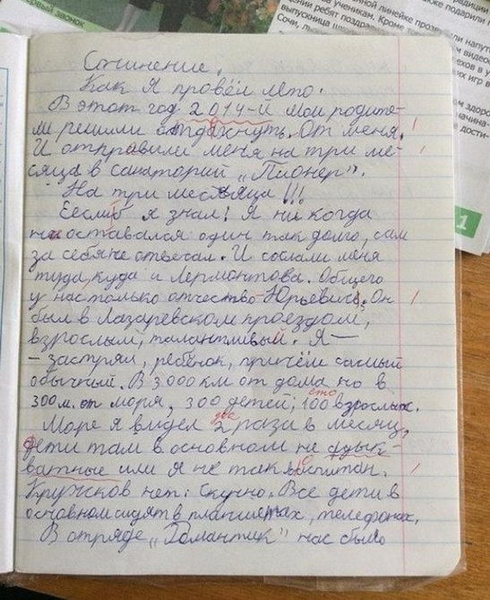 Сочинение.
Как я провёл лето.
В этот год 2014-й мои родите-
ли решили отдохнуть. От меня.
И отправили меня на три ме-
сяца в санаторий "Пионер".
На три месяца!!!
Еесли б я знал! Я ни когда
не оставался один так долго, сам
за себя не отвечал. И сослали меня
туда, куда и Лермонтова. Общего
у нас только отчество - Юрьевичь. Он
был в Лазаревском проездом,
взрослым, талантливый. Я-
- застрял, ребёнок, причём самый
обычный. В 3.000 км от дома но в
300 м. от моря, 300 детей, 100 взрослых.
сто
Море я видел 2 раза в месяц,
два
дети там в основном не адык-
ватные или я не так воспитан.
Кружков нет: Скучно. Все дети в
основном сидят в планшетах, телефонах.
В отряде "Романтик" нас было
первый звонок
1